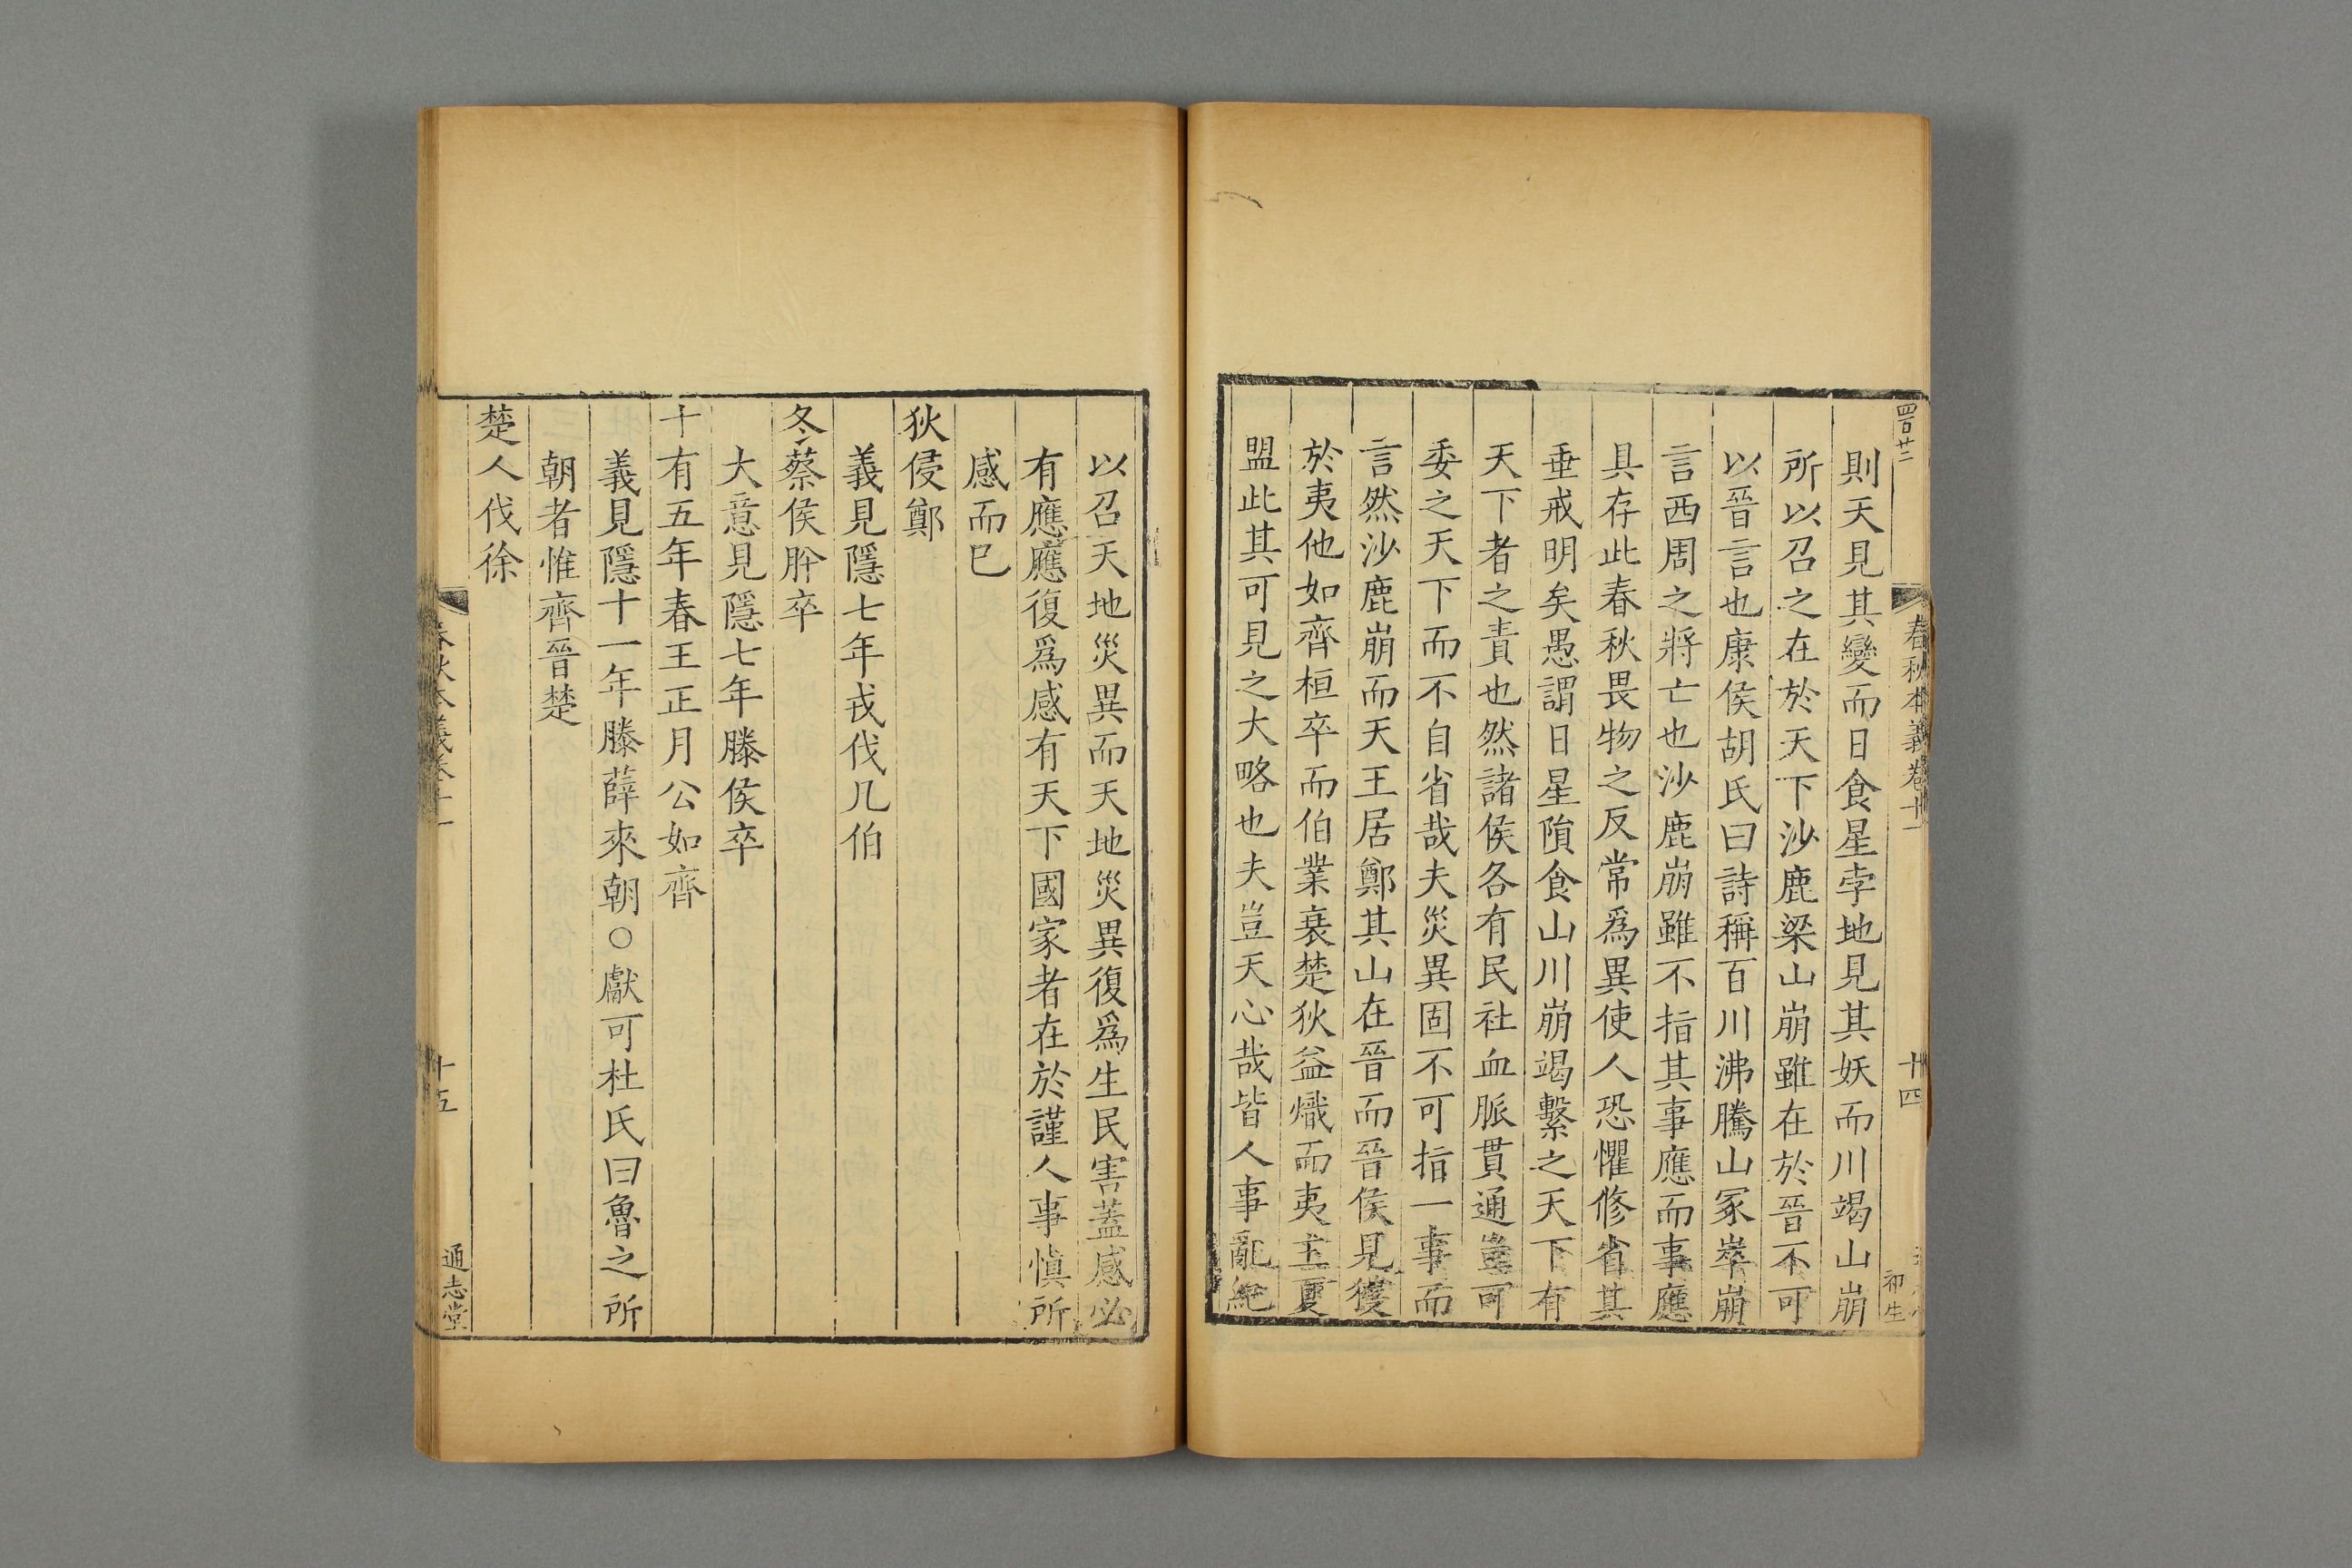 四百廿二
春秋本義卷十一
十四
初生
則天見其變而日食星孛地見其妖而川竭山崩
所以召之在於天下沙鹿梁山崩雖在於晉不可
以晉言也康侯胡氏曰詩稱百川沸騰山冢崒崩
言西周之將亡也沙鹿崩雖不指其事應而事應
具存此春秋畏物之反常爲異使人恐懼修省其
垂戒明矣愚謂日星隕食山川崩竭繫之天下有
天下者之責也然諸侯各有民社血脈貫通豈可
委之天下而不自省哉夫災異固不可指一事而
言然沙鹿崩而天王居鄭其山在晉而晉侯見獲
於夷他如齊桓卒而伯業衰楚狄益熾而夷主夏
盟此其可見之大略也夫豈天心哉皆人事亂紀
以召天地災異而天地災異復爲生民害蓋感必
有應應復爲感有天下國家者在於謹人事慎所
感而已
狄侵鄭
義見隱七年戎伐凡伯
冬蔡侯肸卒
大意見隱七年滕侯卒
十有五年春王正月公如齊
義見隱十一年滕薛來朝○獻可杜氏曰魯之所
朝者惟齊晉楚
楚人伐徐
春秋本義卷十一
十五
通志堂